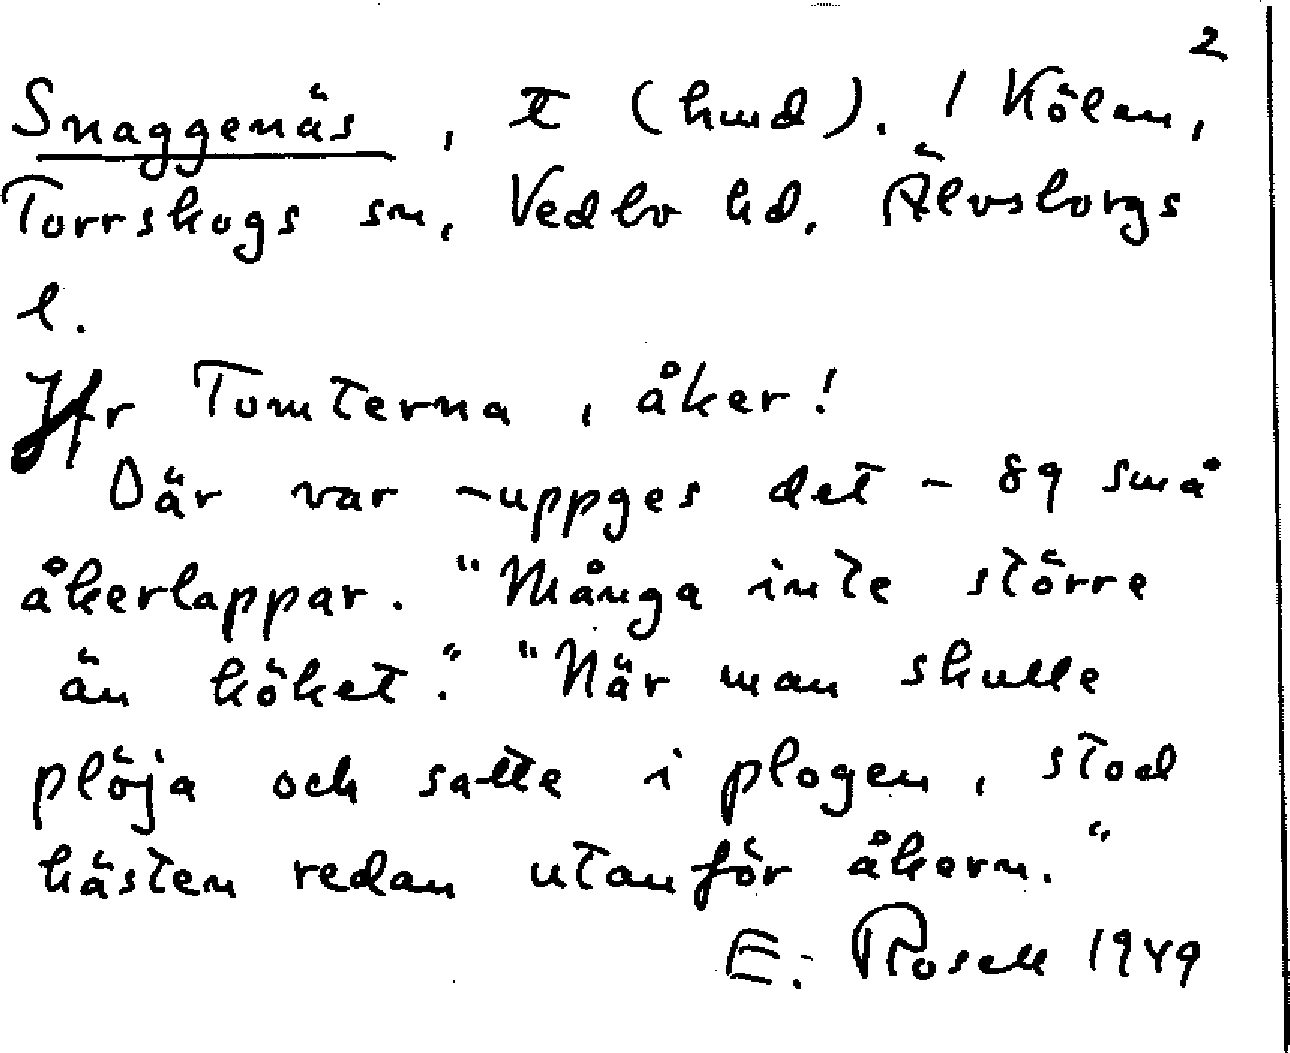 2
Snaggenäs, t (hmd). / Kölen,
Torrskogs sn, Vedbo hd, Älvsborgs
l.
Jfr Tomterna, åker!
Där var - uppges det - 89 små
åkerlappar. "Många inte större
än köket." "När man skulle
plöja och satte i plogen, stod
hästen redan utanför åkern."
E. Rosell 1949